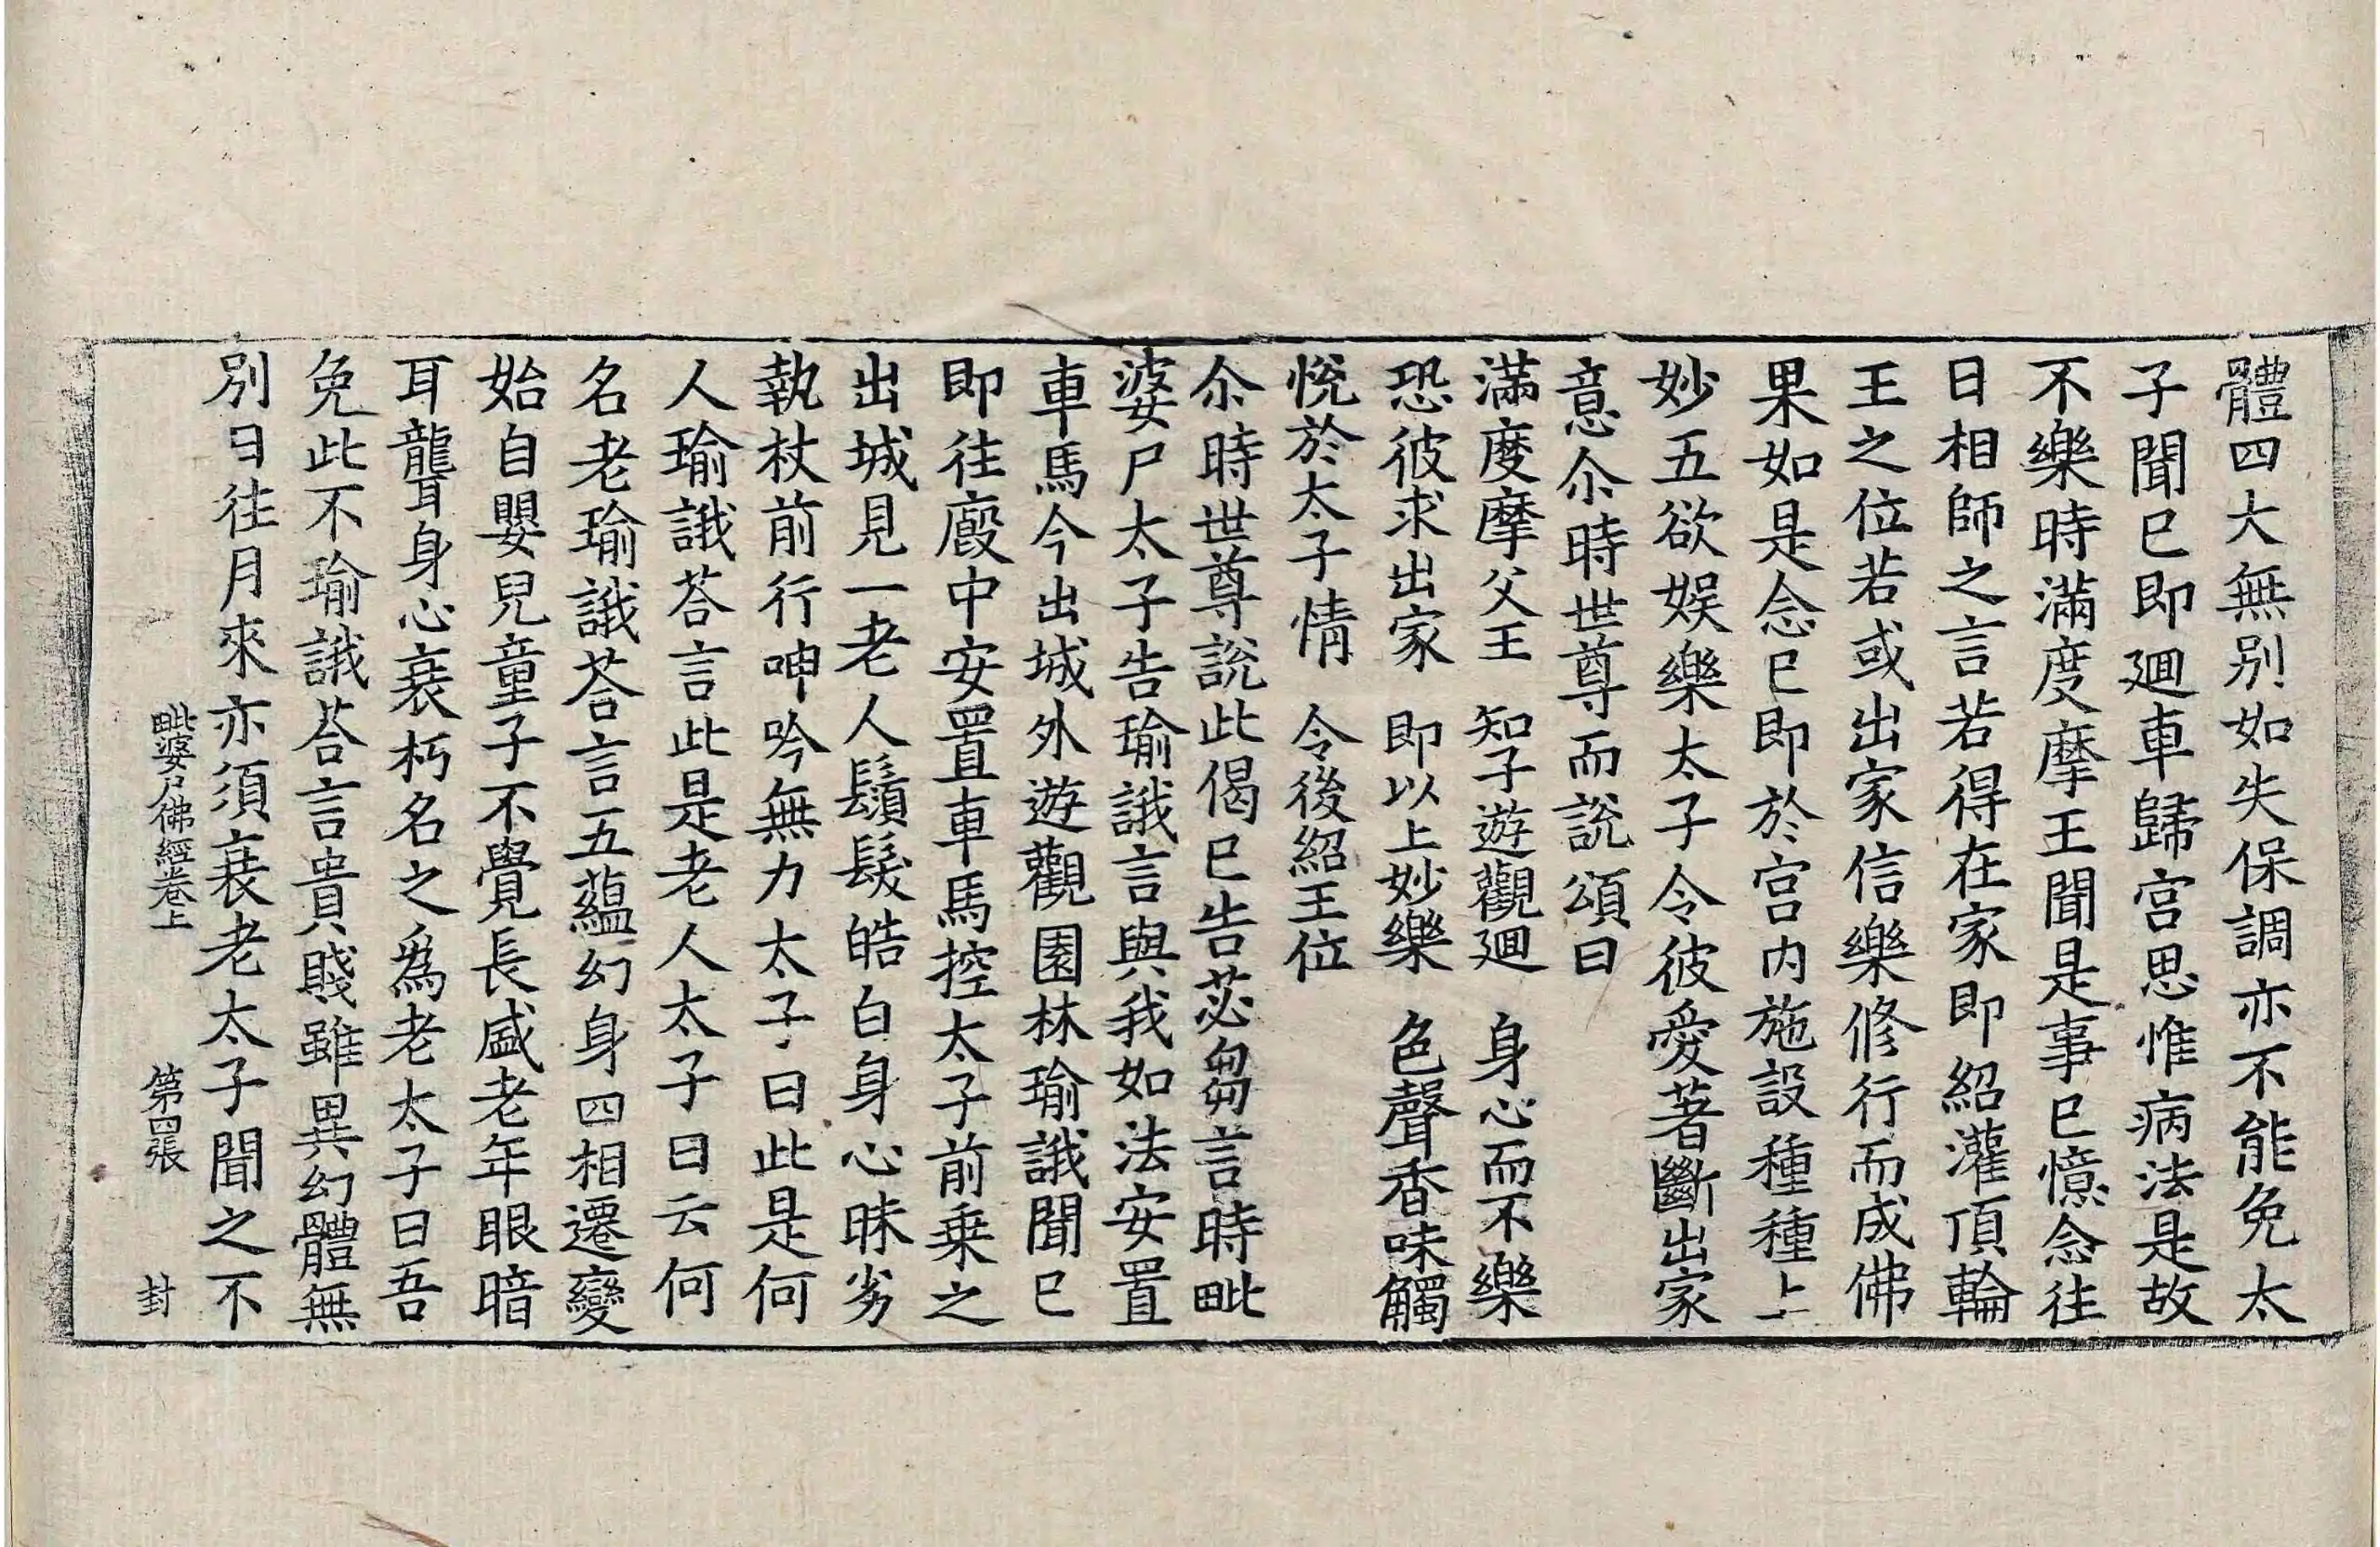 體四大無別如失保調亦不能免太
子聞已即廻車歸宮思惟病法是故
不樂時滿度摩王聞是事已憶念往
日相師之言若得在家即紹灌頂輪
王之位若或出家信樂修行而成佛
果如是念已即於宮內施設種種上
妙五欲娛樂太子令彼愛著斷出家
意尒時世尊而說頌曰
滿度摩父王　知子遊觀廻　身心而不樂
恐彼求出家　即以上妙樂　色聲香味觸
悅於太子情　令後紹王位
尒時世尊說此偈已告苾芻言時毗
婆尸太子告瑜誐言與我如法安置
車馬今出城外遊觀園林瑜誐聞已
即往廐中安置車馬控太子前乗之
出城見一老人鬚髮皓白身心昧劣
執杖前行呻吟無力太子曰此是何
人瑜誐荅言此是老人太子曰云何
名老瑜誐荅言五蘊幻身四相遷變
始自嬰兒童子不覺長盛老年眼暗
耳聾身心衰朽名之爲老太子曰吾
免此不瑜誐荅言貴賤雖異幻體無
別日往月來亦須衰老太子聞之不
毗婆尸佛經卷上　第四張　封